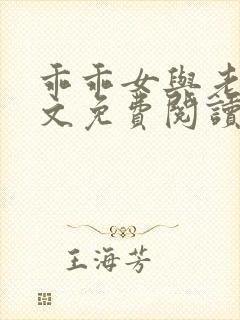 乖乖女與老
文免費閱讀
王海芳